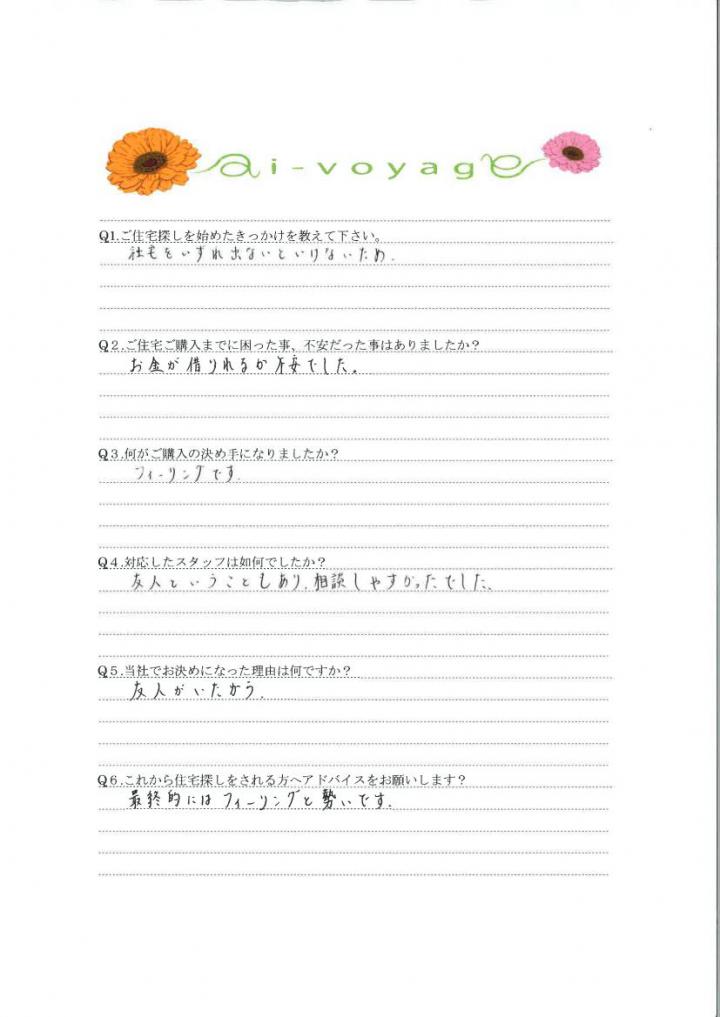 ai-voyage
Q1.ご住宅探しを始めたきっかけを教えて下さい。
社宅をいずれ出ないといけないため.
Q２.ご住宅ご購入までに困った事、不安だった事はありましたか？
お金が借りれるか不安でした。
Q３.何がご購入の決め手になりましたか？
フィーリングです.
Q４.対応したスタッフは如何でしたか？
友人ということもあり、相談しやすかったでした、
Q５.当社でお決めになった理由は何ですか？
友人がいたから.
Q６.これから住宅探しをされる方へアドバイスをお願いします？
最終的にはフィーリングと勢いです.